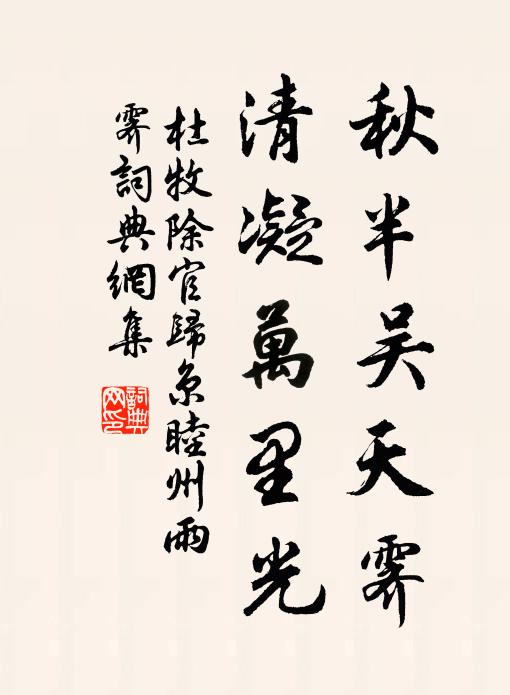 秋半吴天霽
清凝萬里光
杜牧除官歸京睦州雨
霽詞典網集
詞典
网印